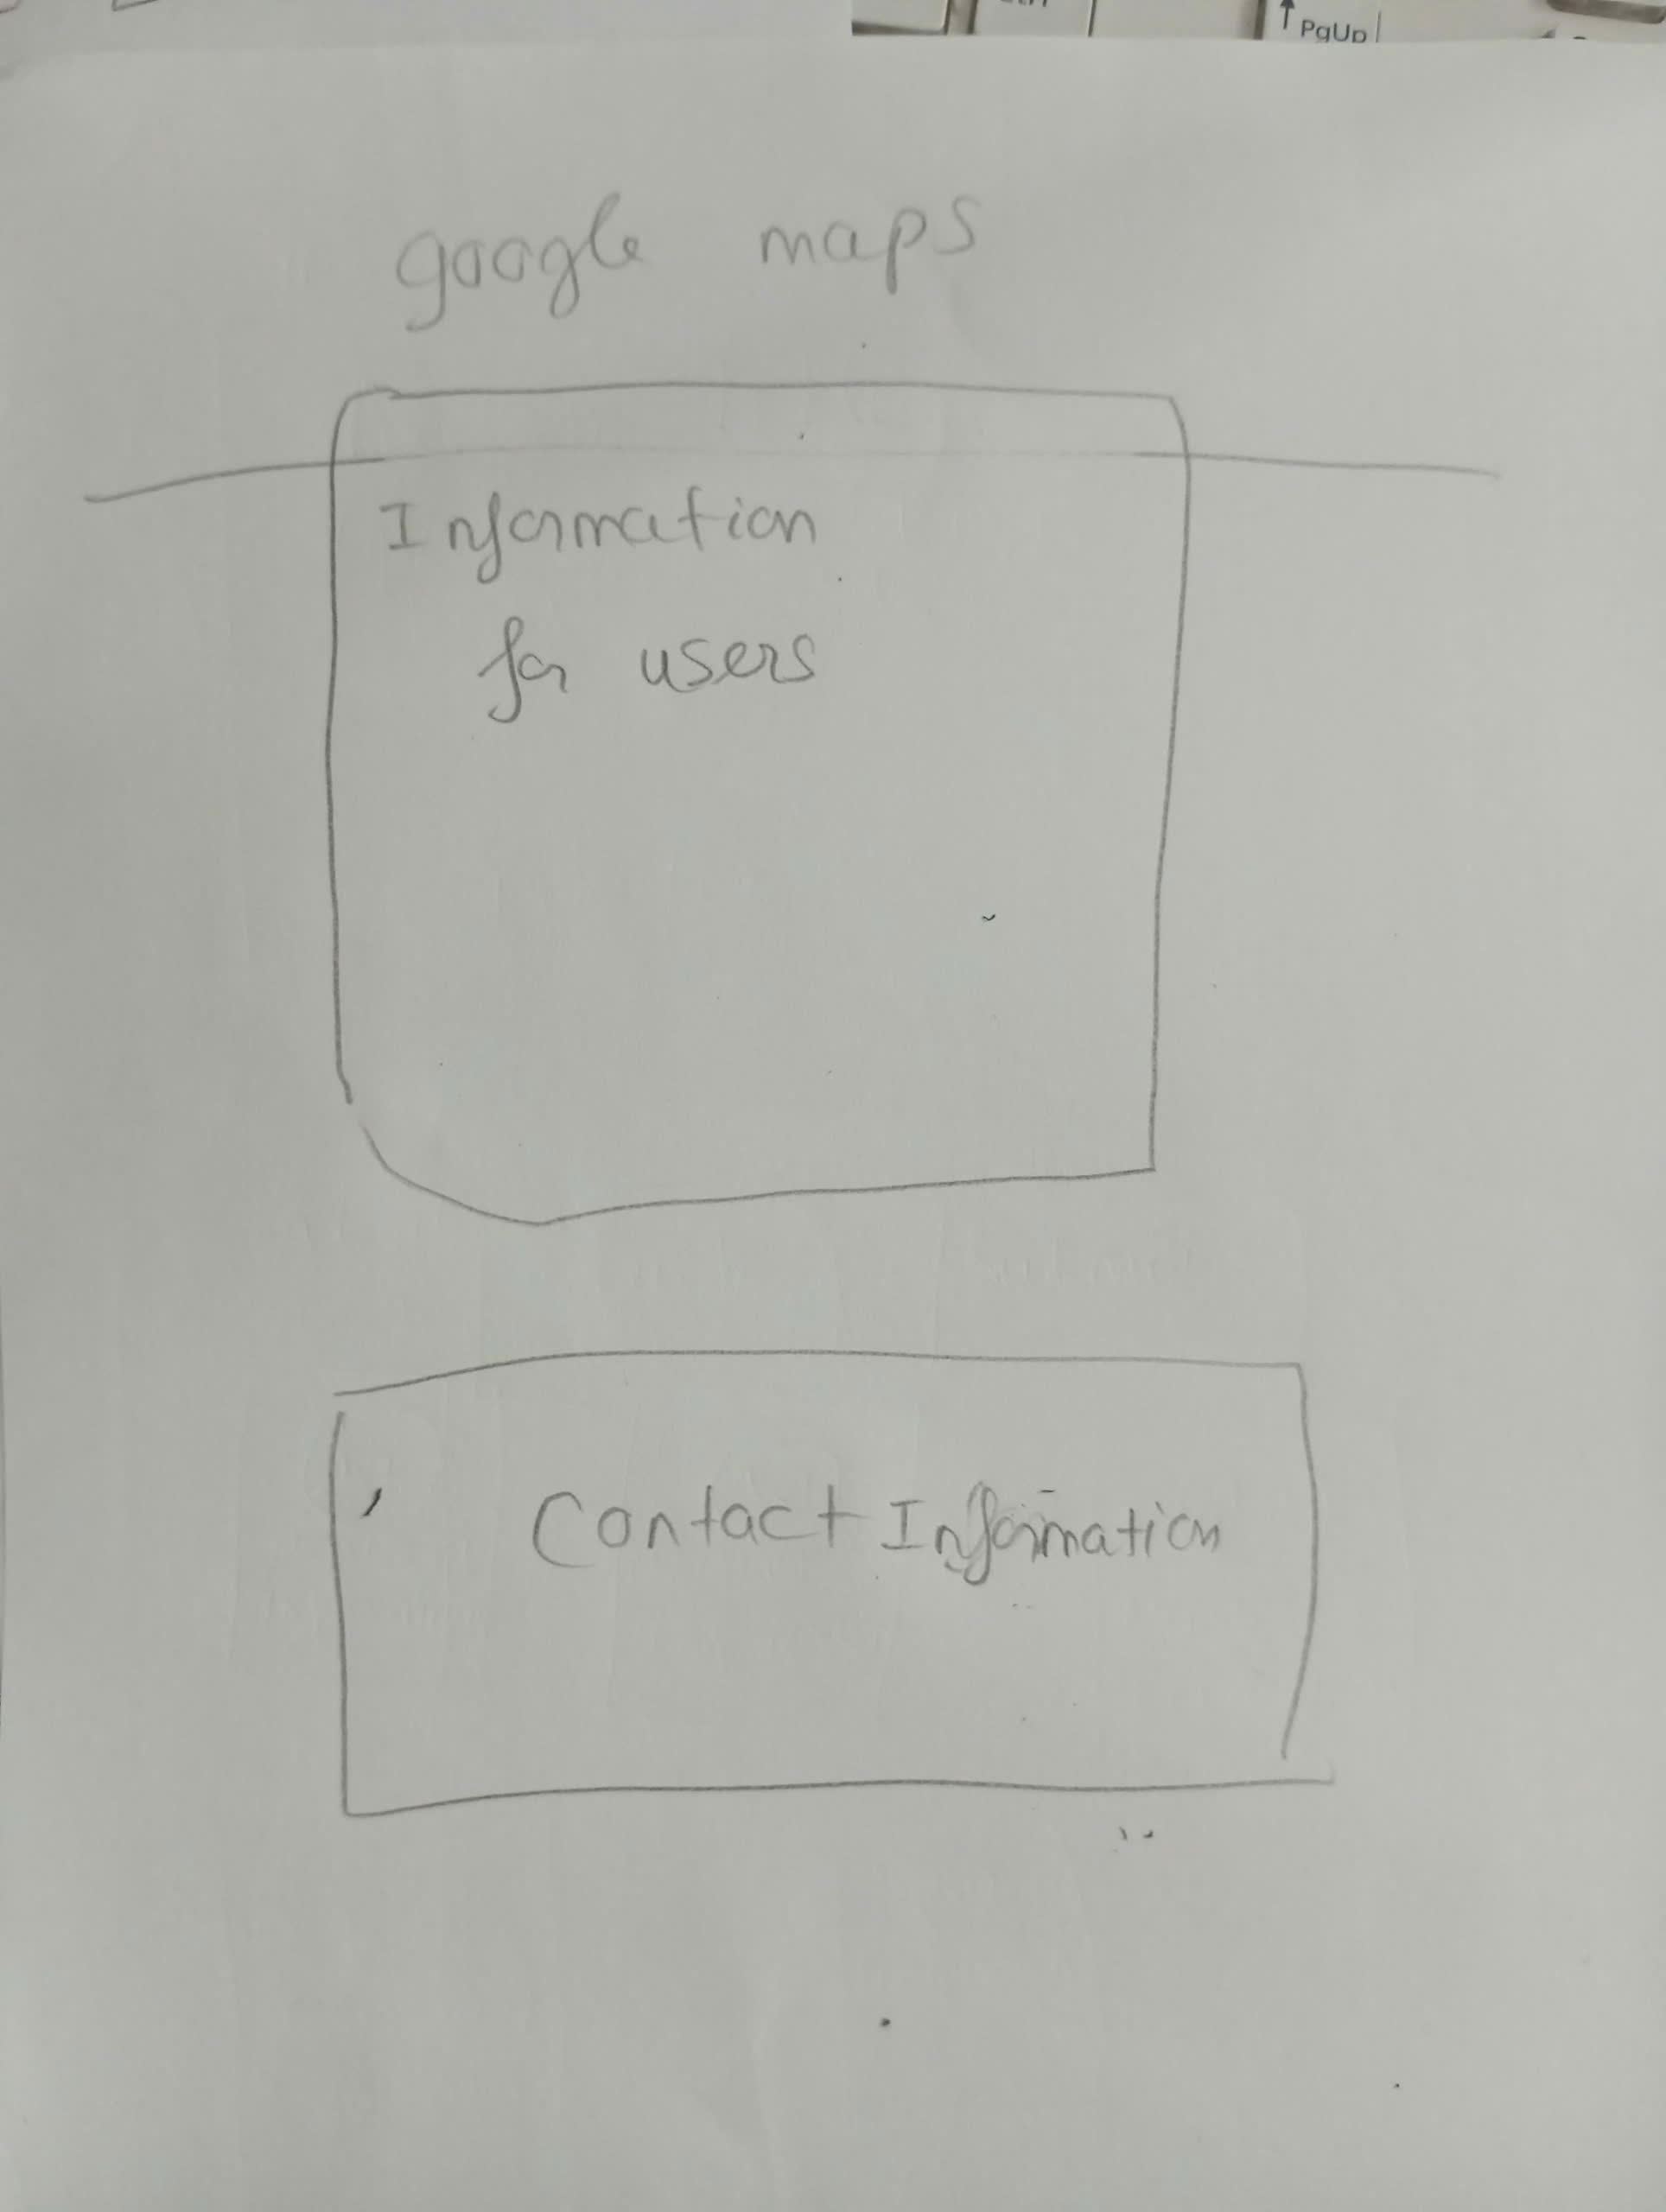 PgUp
google maps
Information
for users
Contact Information